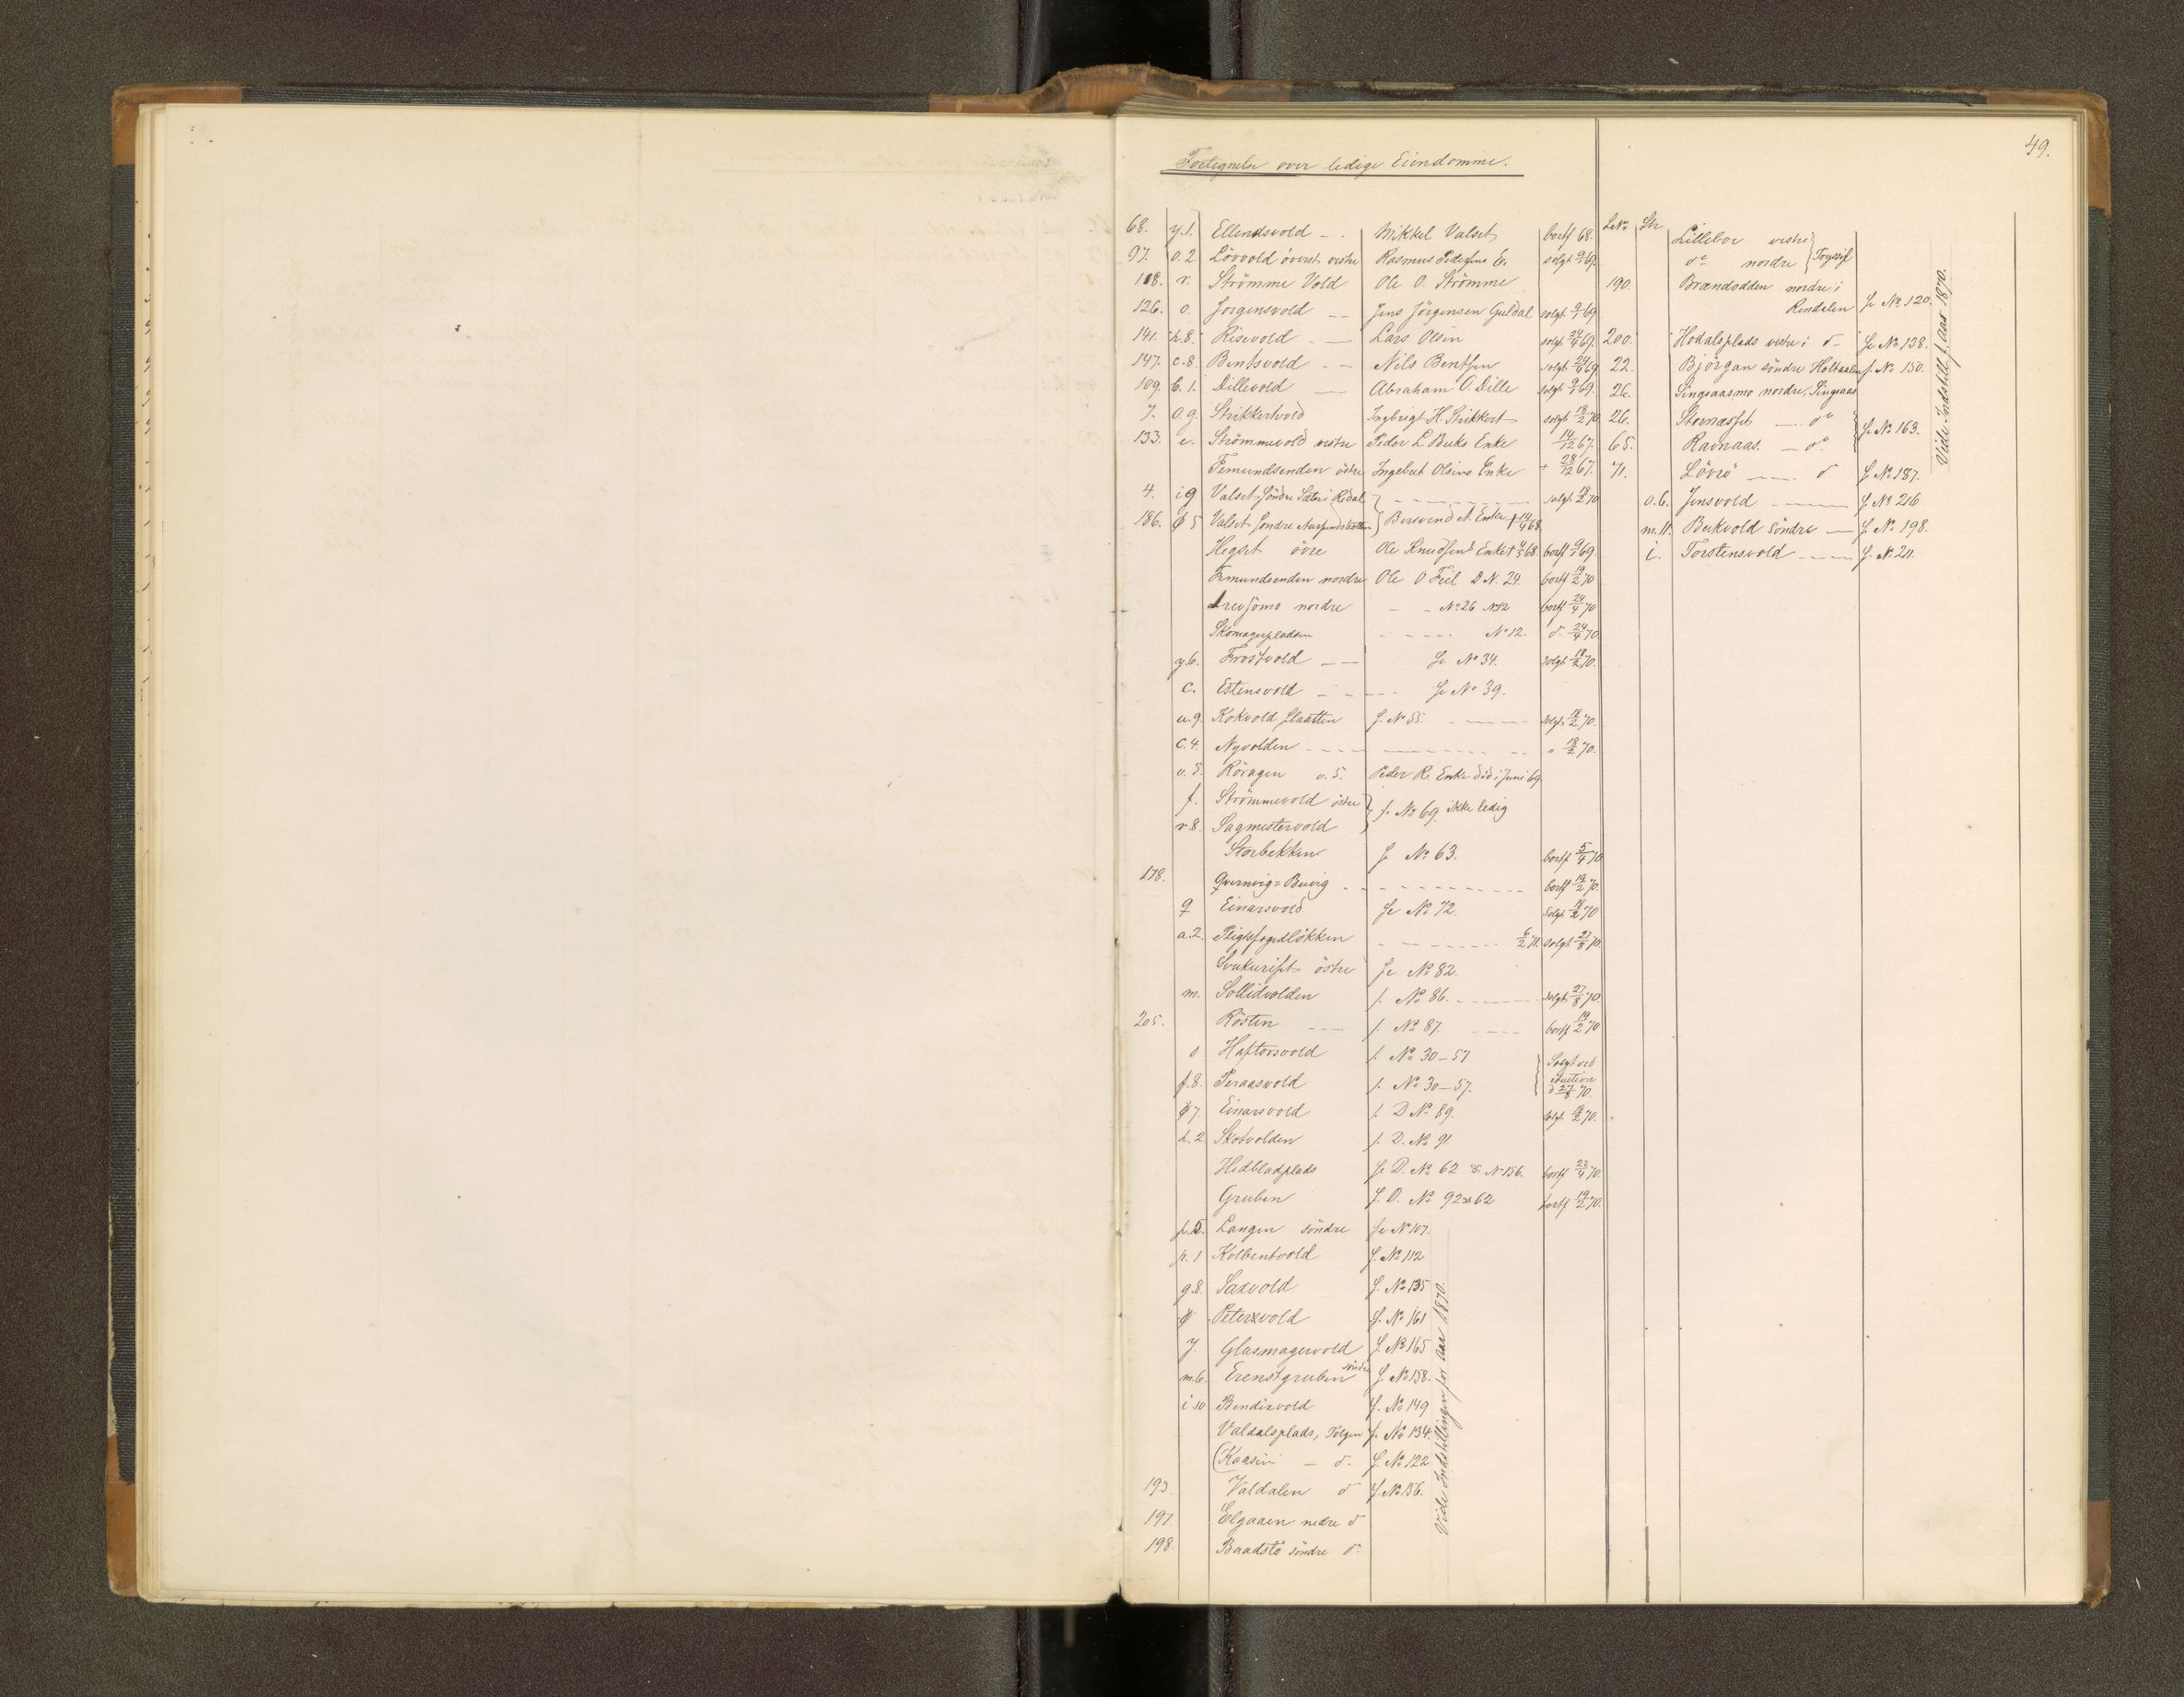 49.
Fortegnelse over ledige Eiendomme.
68. y.1. Ellendsvold - . Mikkel Valset bortf 68.
97. o.2. Lövvold överst vestre Rasmus Pedersens E. solgt 9/1 69.
118. r. Strömme Vold Ole O. Strömme
126. o. Jörgensvold -- Jens Jörgensen Guldal solgt 9/1 69
141. h.8. Risevold - — Lars Olsen solgt 24/4 69.
147. c.8. Bentsvold - - Nils Bentsen solgt 24/4 69
109. b.1. Dillevold — Abraham O. Dille solgt 9/1 69.
7. o.g. Strikkertvold Ingebrigt H. Strikkert solgt 18/2 70
133. e. Strömmevold vestre Peder L Buks Enke 14/12 67.
Femundsenden östre Ingebret Olsens Enke + 28/12 67.
4. i.9 Valset Söndre Sæter i Rödal } - - - solgt 18/2 70
186. ø 5 Valset Söndre } Bersvend A. Enke + 14/4 68.
Hegset övre Ole Knudsens Enke + 4/5 68 bortf 9/1 69.
Femundsenden nordre Ole O Fiel D N. 29. bortf 19/2 70
Drevsömo nordre - - No 26 bortf 24/4 70
Skomagerpladsen - - - - No 12. do 24/4 70
y.6. Frostvold -- Se No 34. solgt 18/2 70.
c. Estensvold - - - - Se No 39.
u.9. Kokvold Slaatten S. No 55. - - - solgt 18/2 70.
c.4. Nyvolden - - - - - - " 18/2 70.
v.5. Röragen v.5. Peder R. Enke död i Juni 69
f. Strömmevold östre } s. No 69. ikke ledig
r.8. Sagmestervold
Storbekken Se No 63. bortf 5/4 70
178. Qvernvig = Buvig - - - bortf 19/2 70.
q Einarsvold Se No 72. Solgt 18/2 70
a.2. Pligtsfogedlökken - - - 6/2 71. solgt 27/8 70.
Svukurist östre Se No 82.
m. Sollidvolden s. No 86. - - - solgt 27/8 70.
205. Rösten - - - s. No 87. - - - bortf 19/2 70
s Haftorsvold s. No 30-57 } Solgt ved
f.8. Peraasvold s. No 30-57. Auction
d 27/8 70.
ø 7. Einarsvold s. D No 89. solgt 18/2 70.
d.2 Skotvolden s. D. No 91.
Hedbladplads Se D. No 62 & No 156. bortf 23/4 70.
Gruben S. D. No 92 & 62 bortf 19/2 70.
p.5. Langen söndre Se No 107.
p.1 Kolbentvold S. No 112
g.8. Saxvold S. No 135
ø Petersvold S. No 161
y. Glasmagervold S. No 165
m.6. Erenstgruben söndre S. No 158.
i 10 Bendixvold S. No 149
Valdalsplads, Tolgen S. No 134.
(Kaasen - do S. No 122
193. Valdalen do S. No 156.
197. Elgaaen nedre do
198. Baadstö söndre do
Vide Indstillingen for Aar 1870.
L No Str
Lillebo vestre } Trysil
do nordre
190. Brændodden nordre i
Rendalen Se No 120.
200. Hodalsplads vestre i do - Se No 138.
22. Björgan söndre Holtaalen s. No 150.
26. Singsaasmo nordre, Singsaas
26. Stornæsset — do } S. No 163.
65. Ravnaas. - do
71. Lövö - - - do S. No 187.
o.6. Jensvold - - - S. No 216
m.11. Bukvold Söndre — S. No 198.
i. Torstensvold - - - S. No 211.
Vide Indstill. f. Aar 1870.